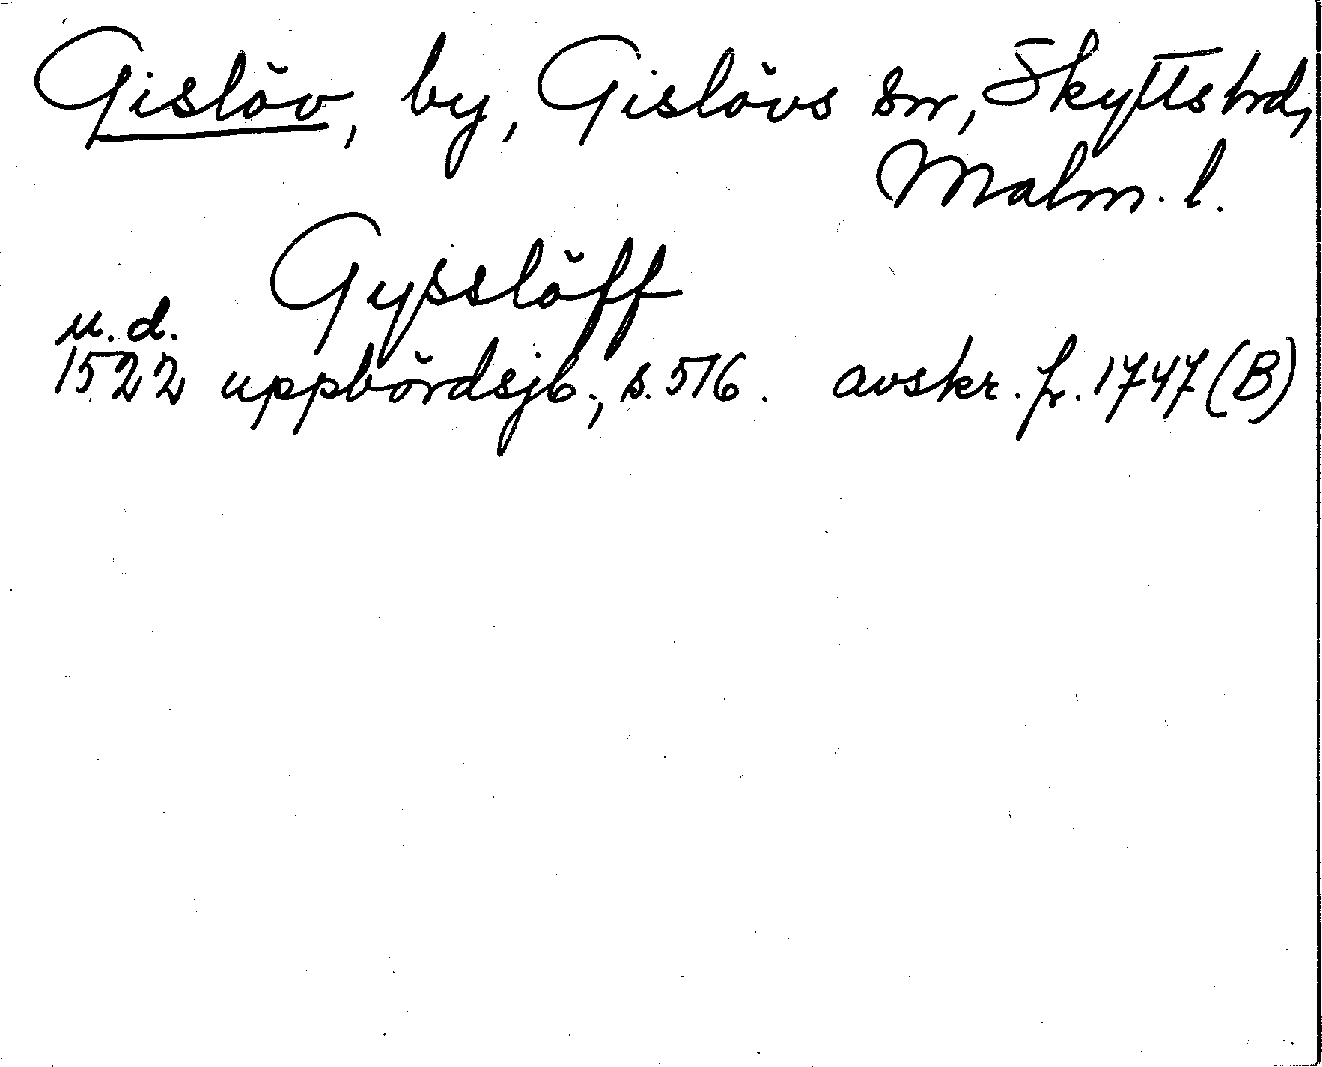 Gislöv, by, Gislövs sn, Skytts hrd,
Malm. l.
Gysslöff
u. d.
1522 uppbördsjb., s. 516. avskr. fr. 1747 (B)